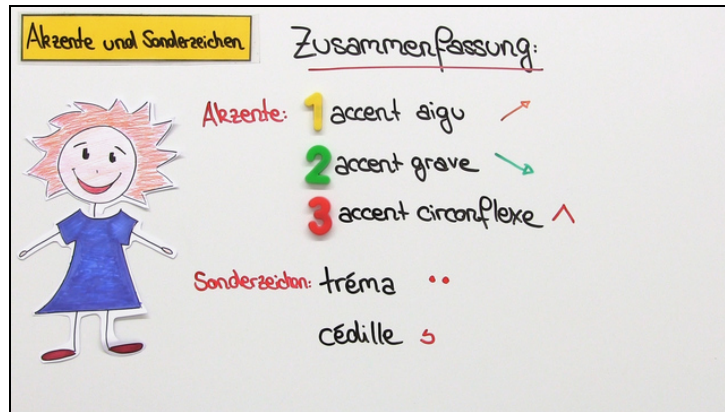 Akzente und Sonderzeichen
Zusammenfassung:
Akzente: 1 accent aigu
2 accent grave
3 accent circonflexe ^
Sonderzeichen: tréma ¨
cédille ¸